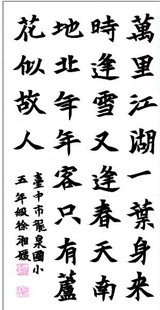 萬里江湖一葉身來
時逢雪又逢春天南
地北年年客只有蘆
花似故人
臺中市龍泉國小
五年級徐湘媛